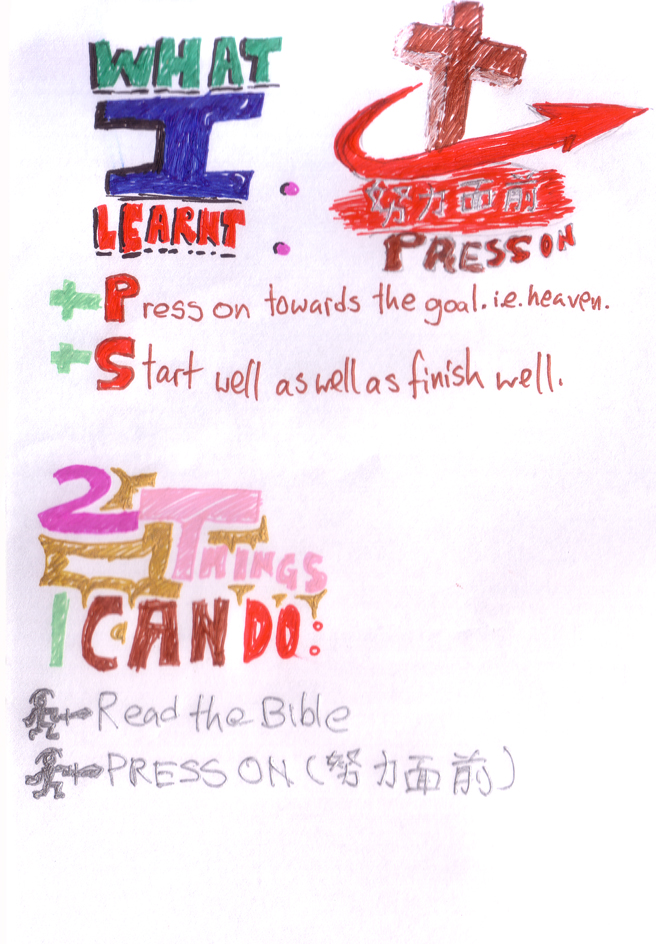 WHAT
I
LEARNT :
努力面前
PRESS ON
Press on towards the goal. i.e. heaven.
Start well as well as finish well.
2 THINGS
I CAN DO:
Read the Bible
PRESS ON (努力面前)